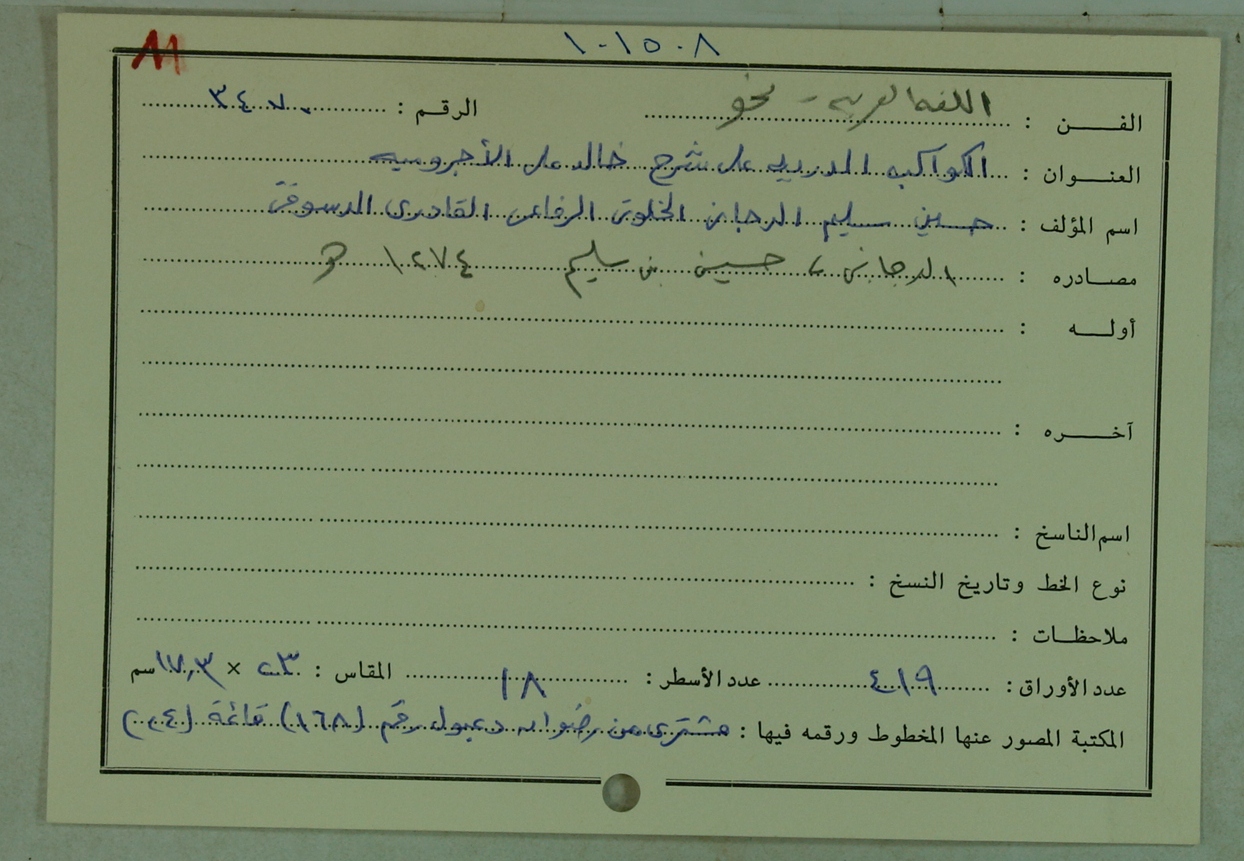 ١٠١٥٠٨
الفن : اللغة العربية - نحو الرقم : ٣٤٧٠
العنوان : الكواكب الدرية على شرح خالد على الأجرومية
اسم المؤلف : حسين سليم الدجاني الخلوتي الرفاعي القادري الدسوقي
مصادره : الدجاني ، حسين بن سليم ١٢٧٤ هـ
أوله :
آخره :
اسم الناسخ :
نوع الخط وتاريخ النسخ :
ملاحظات :
عدد الأوراق : ٤١٩ عدد الأسطر : ١٨ المقاس : ٢٣ × ١٧,٣ سم
المكتبة المصور عنها المخطوط ورقمه فيها : مشترى من رضوان دعبول رقم (١٦٨) قائمة